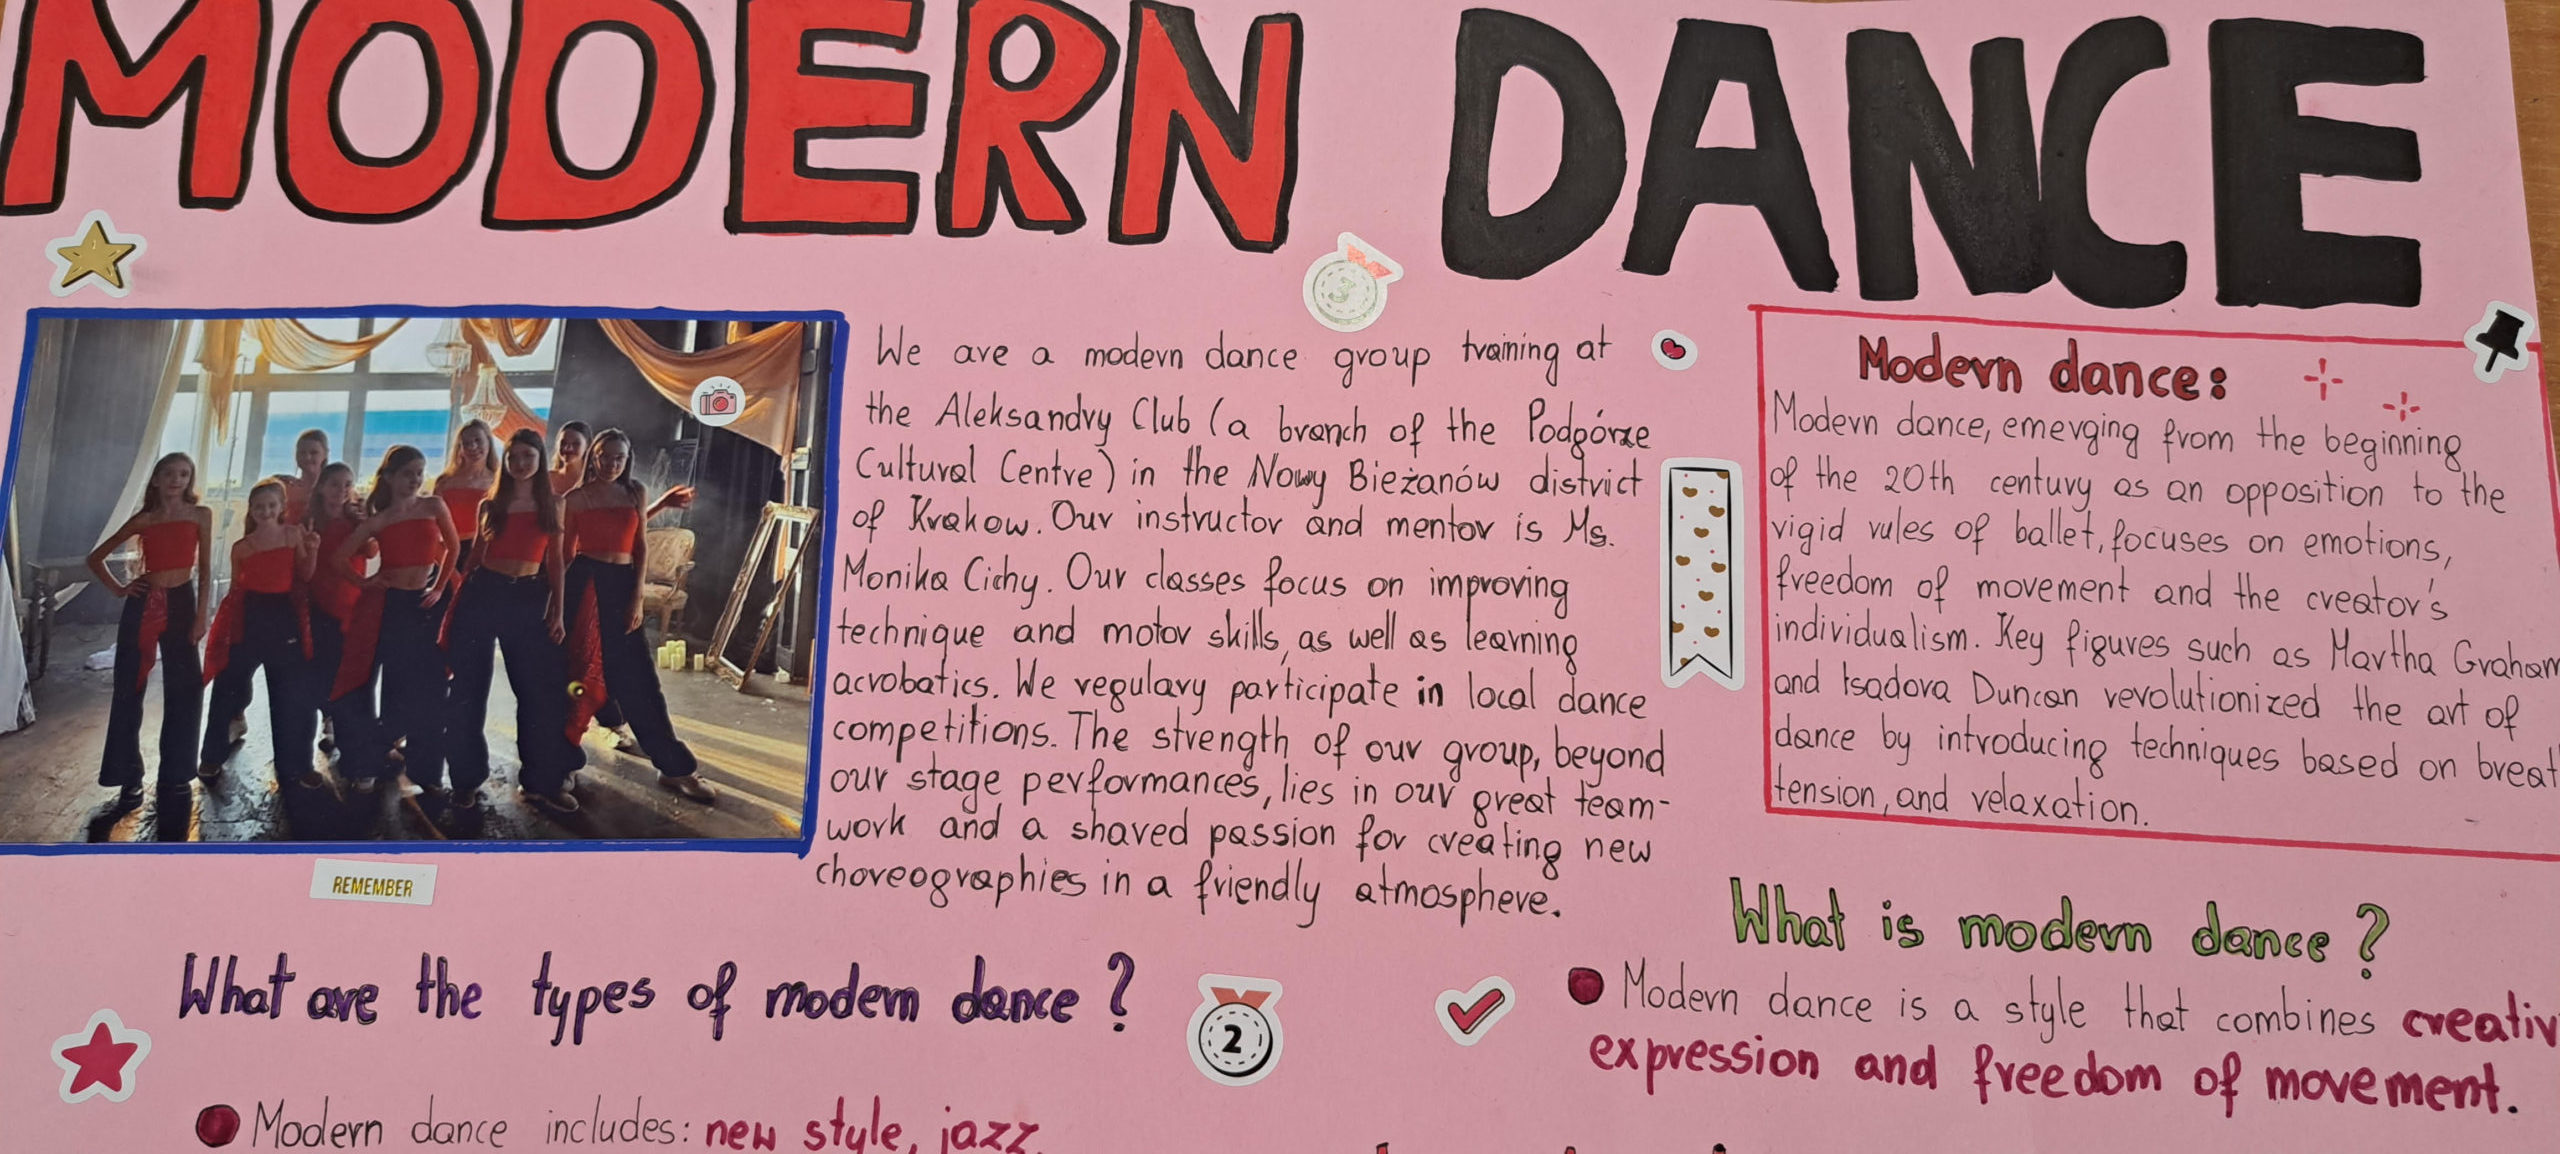 MODERN DANCE
3
We are a modern dance group training at
the Aleksandry Club (a branch of the Podgórze
Cultural Centre) in the Nowy Bieżanów district
of Krakow. Our instructor and mentor is Ms.
Monika Cichy. Our classes focus on improving
technique and motor skills, as well as learning
acrobatics. We regulary participate in local dance
competitions. The strength of our group, beyond
our stage performances, lies in our great team-
work and a shared passion for creating new
choreographies in a friendly atmosphere.
Modern dance:
Modern dance, emerging from the beginning
of the 20th century as an opposition to the
rigid rules of ballet, focuses on emotions,
freedom of movement and the creator's
individualism. Key figures such as Martha Graham
and Isadora Duncan revolutionized the art of
dance by introducing techniques based on breat
tension, and relaxation.
REMEMBER
What are the types of modern dance?
2
Modern dance includes: new style, jazz,
What is modern dance?
Modern dance is a style that combines creativ
expression and freedom of movement.